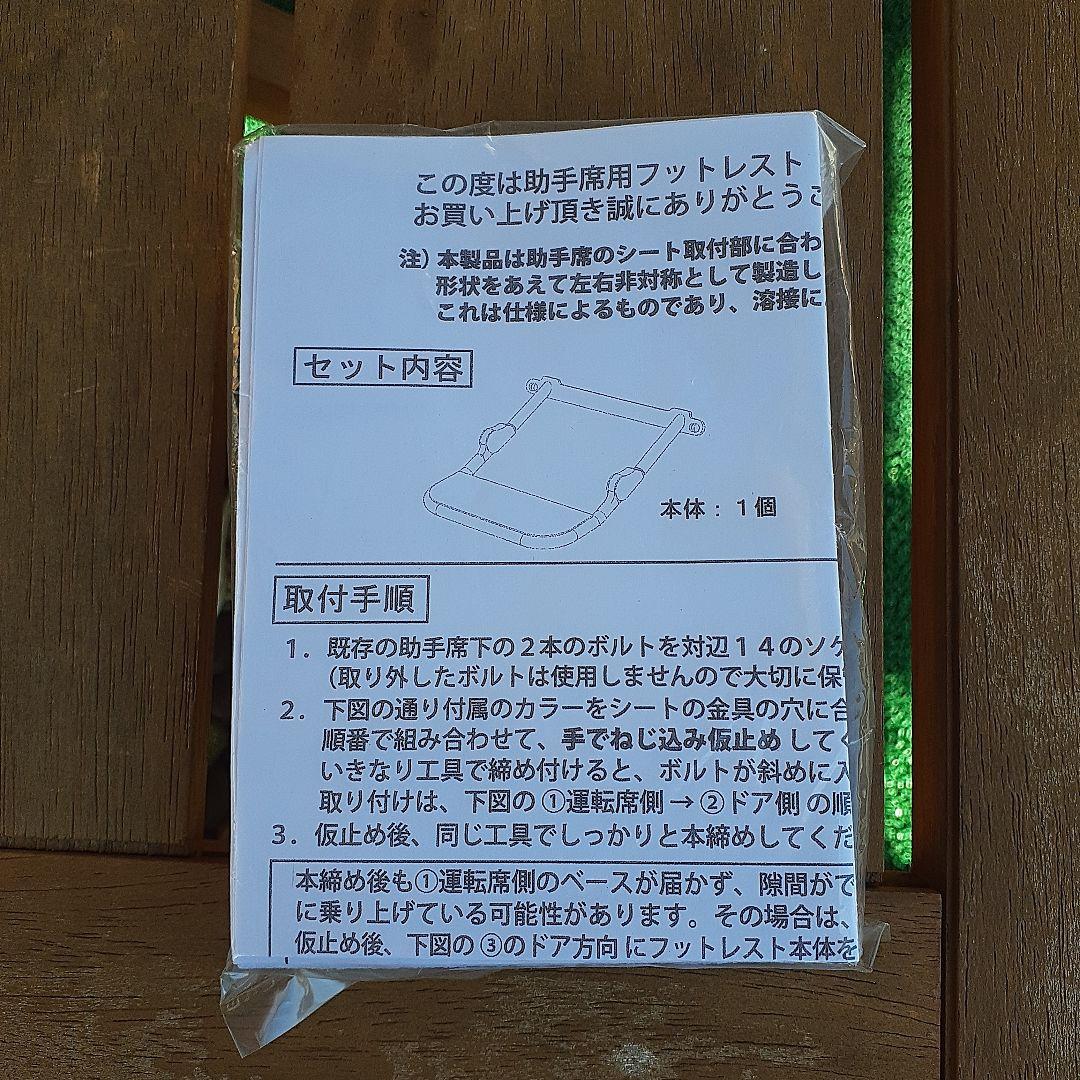 この度は助手席用フットレスト
お買い上げ頂き誠にありがとうご
注）本製品は助手席のシート取付部に合わ
形状をあえて左右非対称として製造し
これは仕様によるものであり、溶接に
セット内容
本体：１個
取付手順
１．既存の助手席下の２本のボルトを対辺１４のソケ
（取り外したボルトは使用しませんので大切に保
２．下図の通り付属のカラーをシートの金具の穴に合
順番で組み合わせて、手でねじ込み仮止めしてく
いきなり工具で締め付けると、ボルトが斜めに入
取り付けは、下図の①運転席側→②ドア側の順
３．仮止め後、同じ工具でしっかりと本締めしてくだ
本締め後も①運転席側のベースが届かず、隙間がで
に乗り上げている可能性があります。その場合は、
仮止め後、下図の③のドア方向にフットレスト本体を